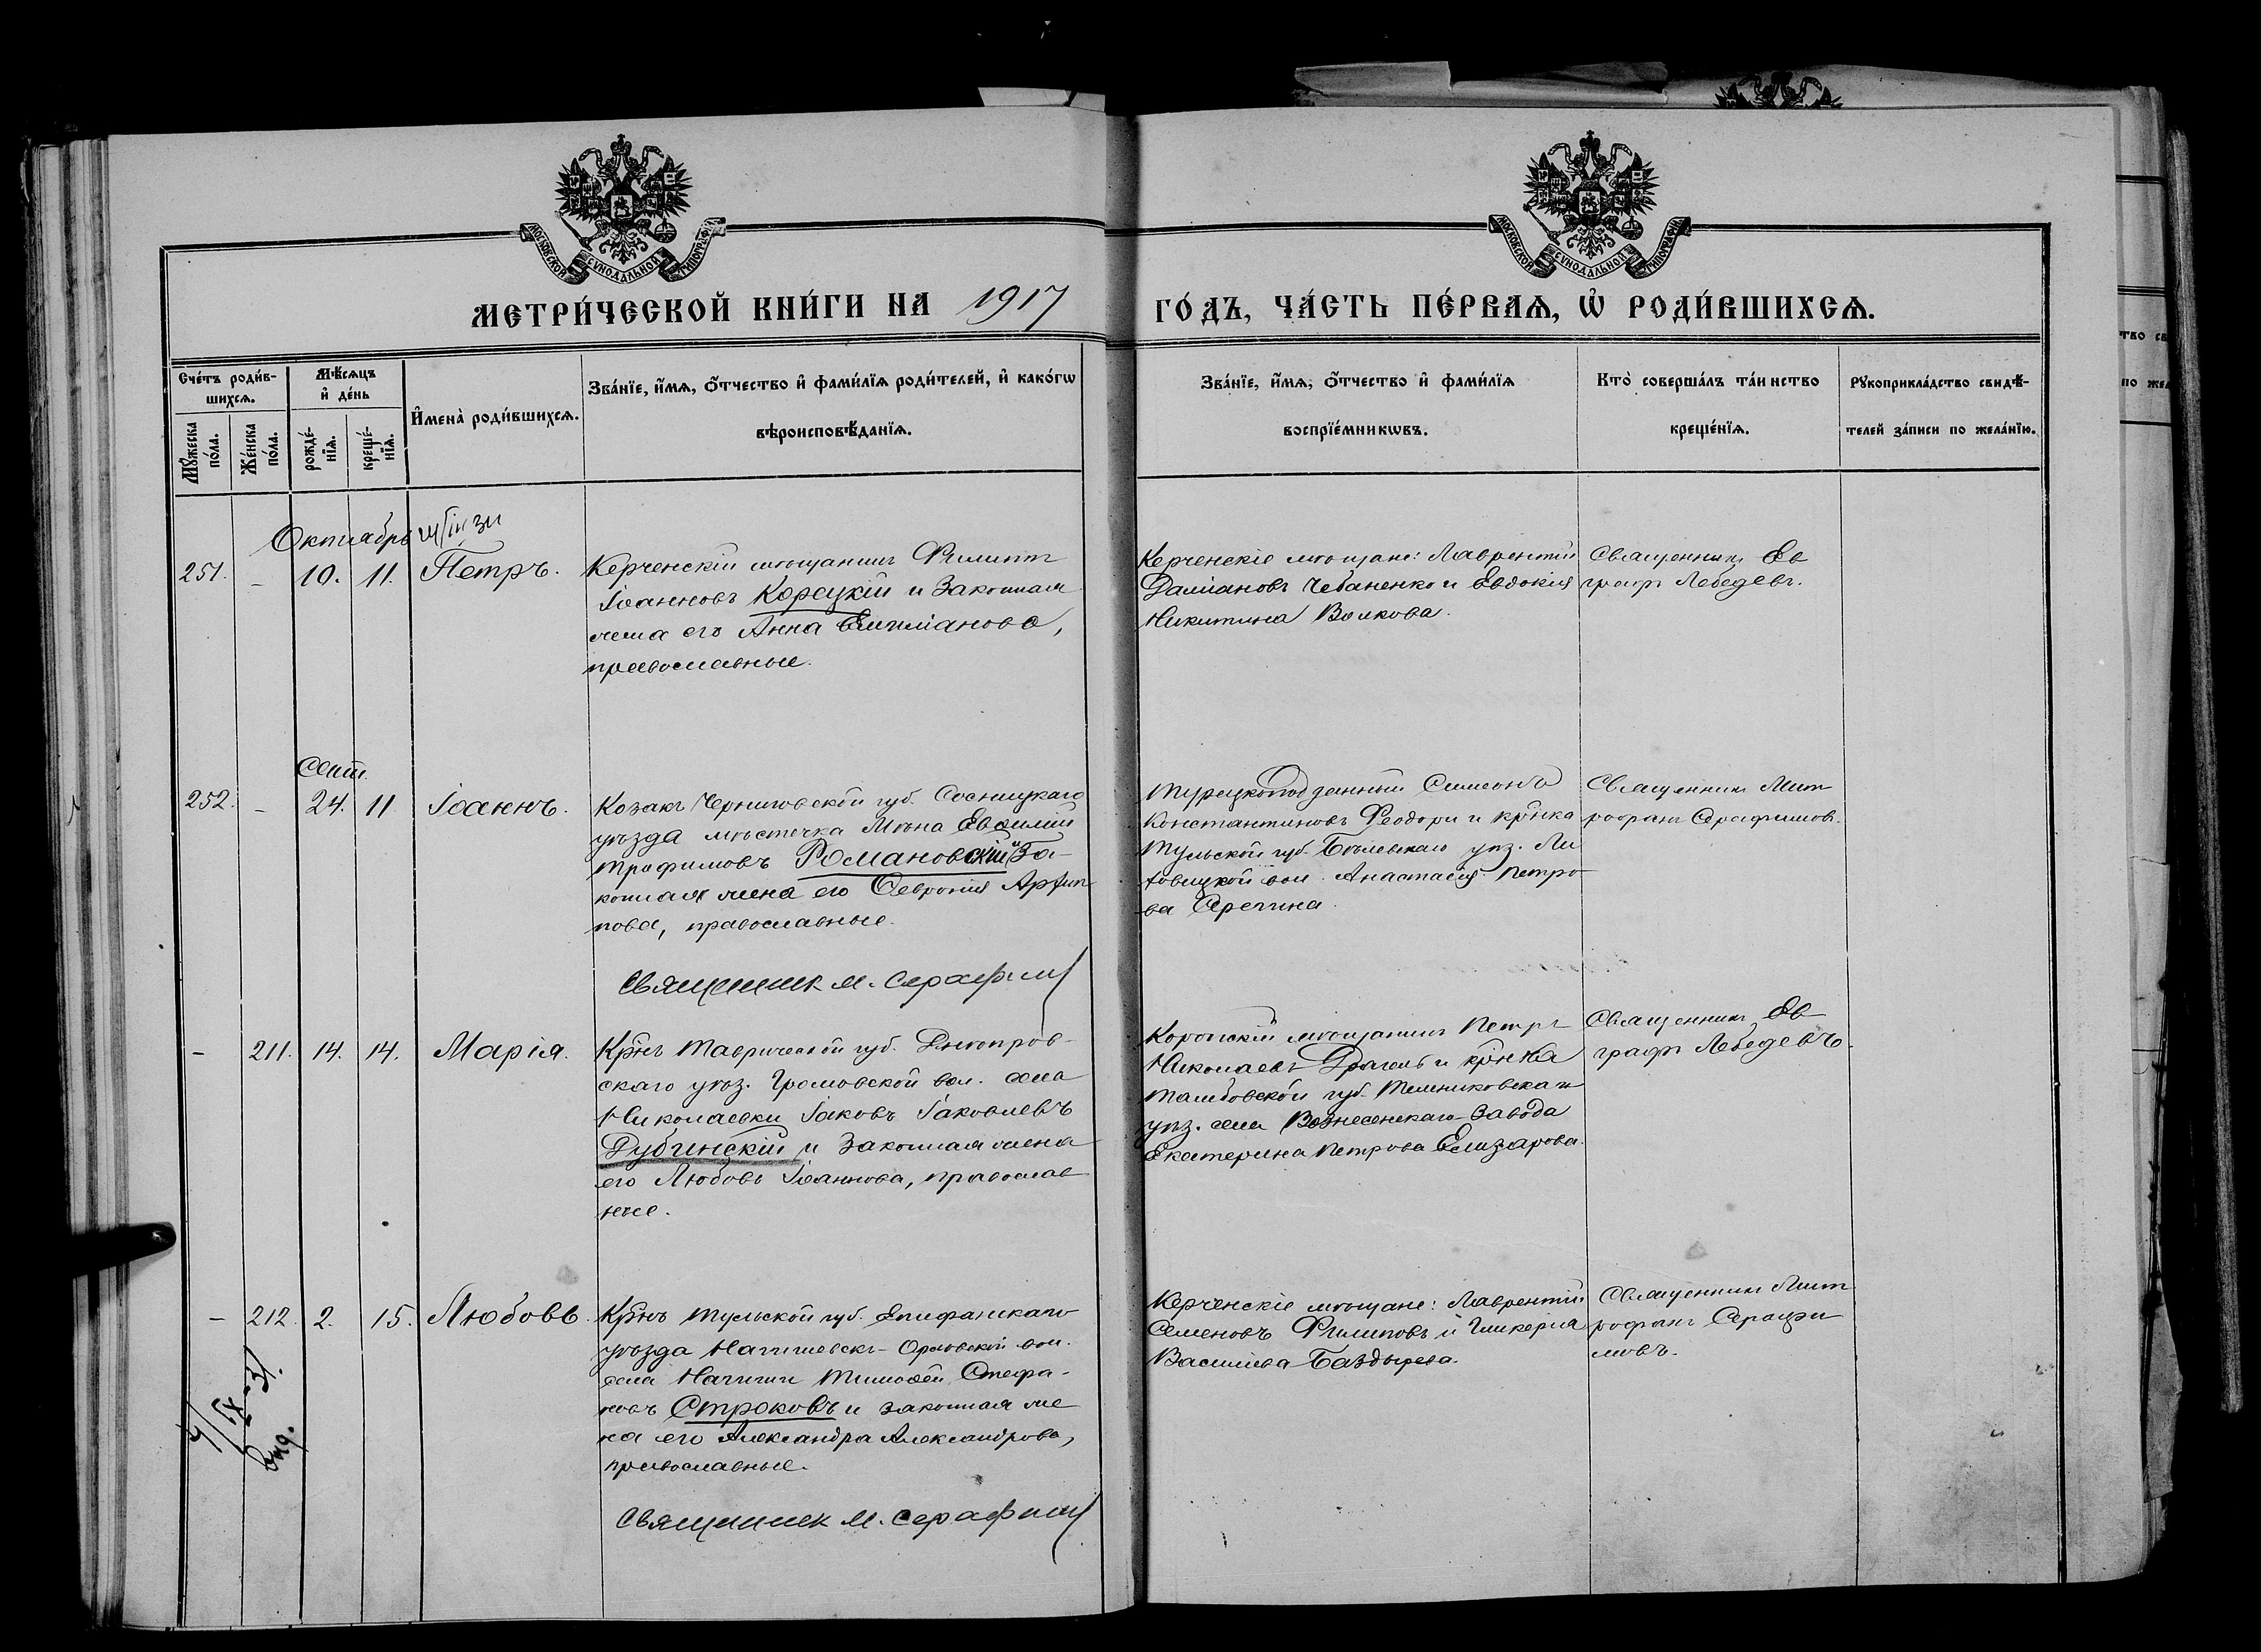 МОСКОВСКОЙ СУНОДАЛЬНОЙ ТИПОГРАФІИ
МОСКОВСКОЙ СУНОДАЛЬНОЙ ТИПОГРАФІИ
МЕТРИ́ЧЕСКОЙ КНИ́ГИ НА 1917 ГО́ДЪ, ЧА́СТЬ ПЕ́РВАѦ, Ѡ҆ РОДИ́ВШИХСѦ.
Сче́тъ роди́в-
шихсѧ.
Мꙋ́жеска по́ла.
Же́нска по́ла.
Мѣ́сѧцъ
и҆ де́нь
рожде́-
нїѧ.
креще́-
нїѧ.
И҆мена̀ роди́вшихсѧ.
Зва́нїе, и҆́мѧ, ѻ҆́тчество и҆ фами́лїѧ роди́телей, и҆ како́гѡ
вѣроисповѣ́данїѧ.
Зва́нїе, и҆́мѧ, ѻ҆́тчество и҆ фами́лїѧ
воспрїе́мникѡвъ.
Кто̀ соверша́лъ та́инство
креще́нїѧ.
Рꙋкоприкла́дство свидѣ́-
телей за́писи по жела́нїю.
Октябрь
251. - 10. 11. Петръ.
Керченскій мѣщанинъ Филиппъ
Іоанновъ Корецкій и законная
жена его Анна
православные.
Керченскіе мѣщане: Лаврентій
Даміановъ Чебаненко и Евдокія
Никитина Волкова.
Священникъ Ев
графъ Лебедевъ.
Сент.
252. - 24. 11 Іоаннъ.
Козакъ Черниговской губ. Сосницкаго
уѣзда мѣстечка Мѣна Евфимій
Трофимовъ Романовскій и За-
конная жена его Февронія Архип
пова, православные.
Священник М. Серафимов
Турецкоподданный Симеонъ
Константиновъ Феодори и кр-нка
Тульской губ. Бѣлевскаго уѣз.
вол. Анастасія Петро
ва
Священникъ Мит
рофанъ Серафимовъ.
- 211. 14. 14. Марія.
Кр-нъ Таврической губ. Днѣпров-
скаго уѣз. Громовской вол. села
Николаевки Іаковъ Іаковлевъ
Дубинскій и законная жена
его Любовь Іоаннова, православ
ные.
Коропскій мѣщанинъ Петръ
Николаевъ и кр-нка
Тамбовской губ. Темниковскаго
уѣз. села Вознесенскаго-Завода
Екатерина Петрова Елизарова.
Священникъ Ев
графъ Лебедевъ.
- 212. 2. 15. Любовь.
Кр-нъ Тульской губ. Епифанскаго
уѣзда Орловской вол.
села Тимофей Стефа-
новъ Строковъ и законная же
на его Александра Александрова,
православные.
Священник М. Серафимов
Керченскіе мѣщане: Лаврентій
Семеновъ Филиповъ и Гликерія
Васильева Баздырева.
Священникъ Мит
рофанъ Серафи
мовъ.
4/IX-31.
выд.